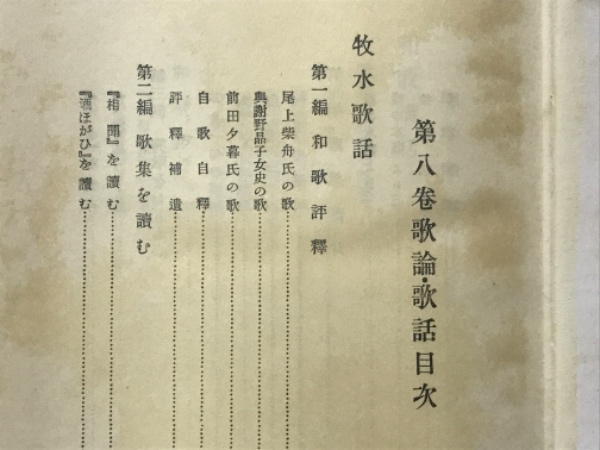 第八卷歌論・歌話目次
牧水歌話
第一編 和歌評釋
尾上柴舟氏の歌
與謝野晶子女史の歌
前田夕暮氏の歌
自歌自釋
評釋補遺
第二編 歌集を讀む
『相聞』を讀む
『酒ほがひ』を讀む